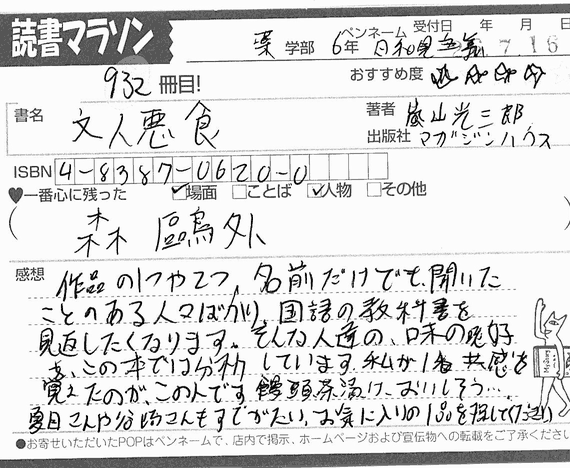 読書マラソン
薬 学部 6年 ペンネーム 日和見主義 受付日 年 月 日
7.16
932 冊目! おすすめ度 ☆☆☆☆
書名 文人悪食
著者 嵐山光三郎
出版社 マガジンハウス
ISBN 4-8387-0620-0
♥一番心に残った ☑場面 □ことば ☑人物 □その他
( 森 鷗外 )
感想 作品の1つや2つ、名前だけでも聞いた
ことのある人々ばかり、国語の教科書を
見返したくなります。そんな人達の、味の嗜好
を、この本では分析しています。私が1番共感を
覚えたのが、この人です。饅頭茶漬け、おいしそう…。
夏目さんや谷崎さんもすてがたい、お気に入りの1品を探してください
●お寄せいただいたPOPはペンネームで、店内で掲示、ホームページおよび宣伝物への転載をご了承ください